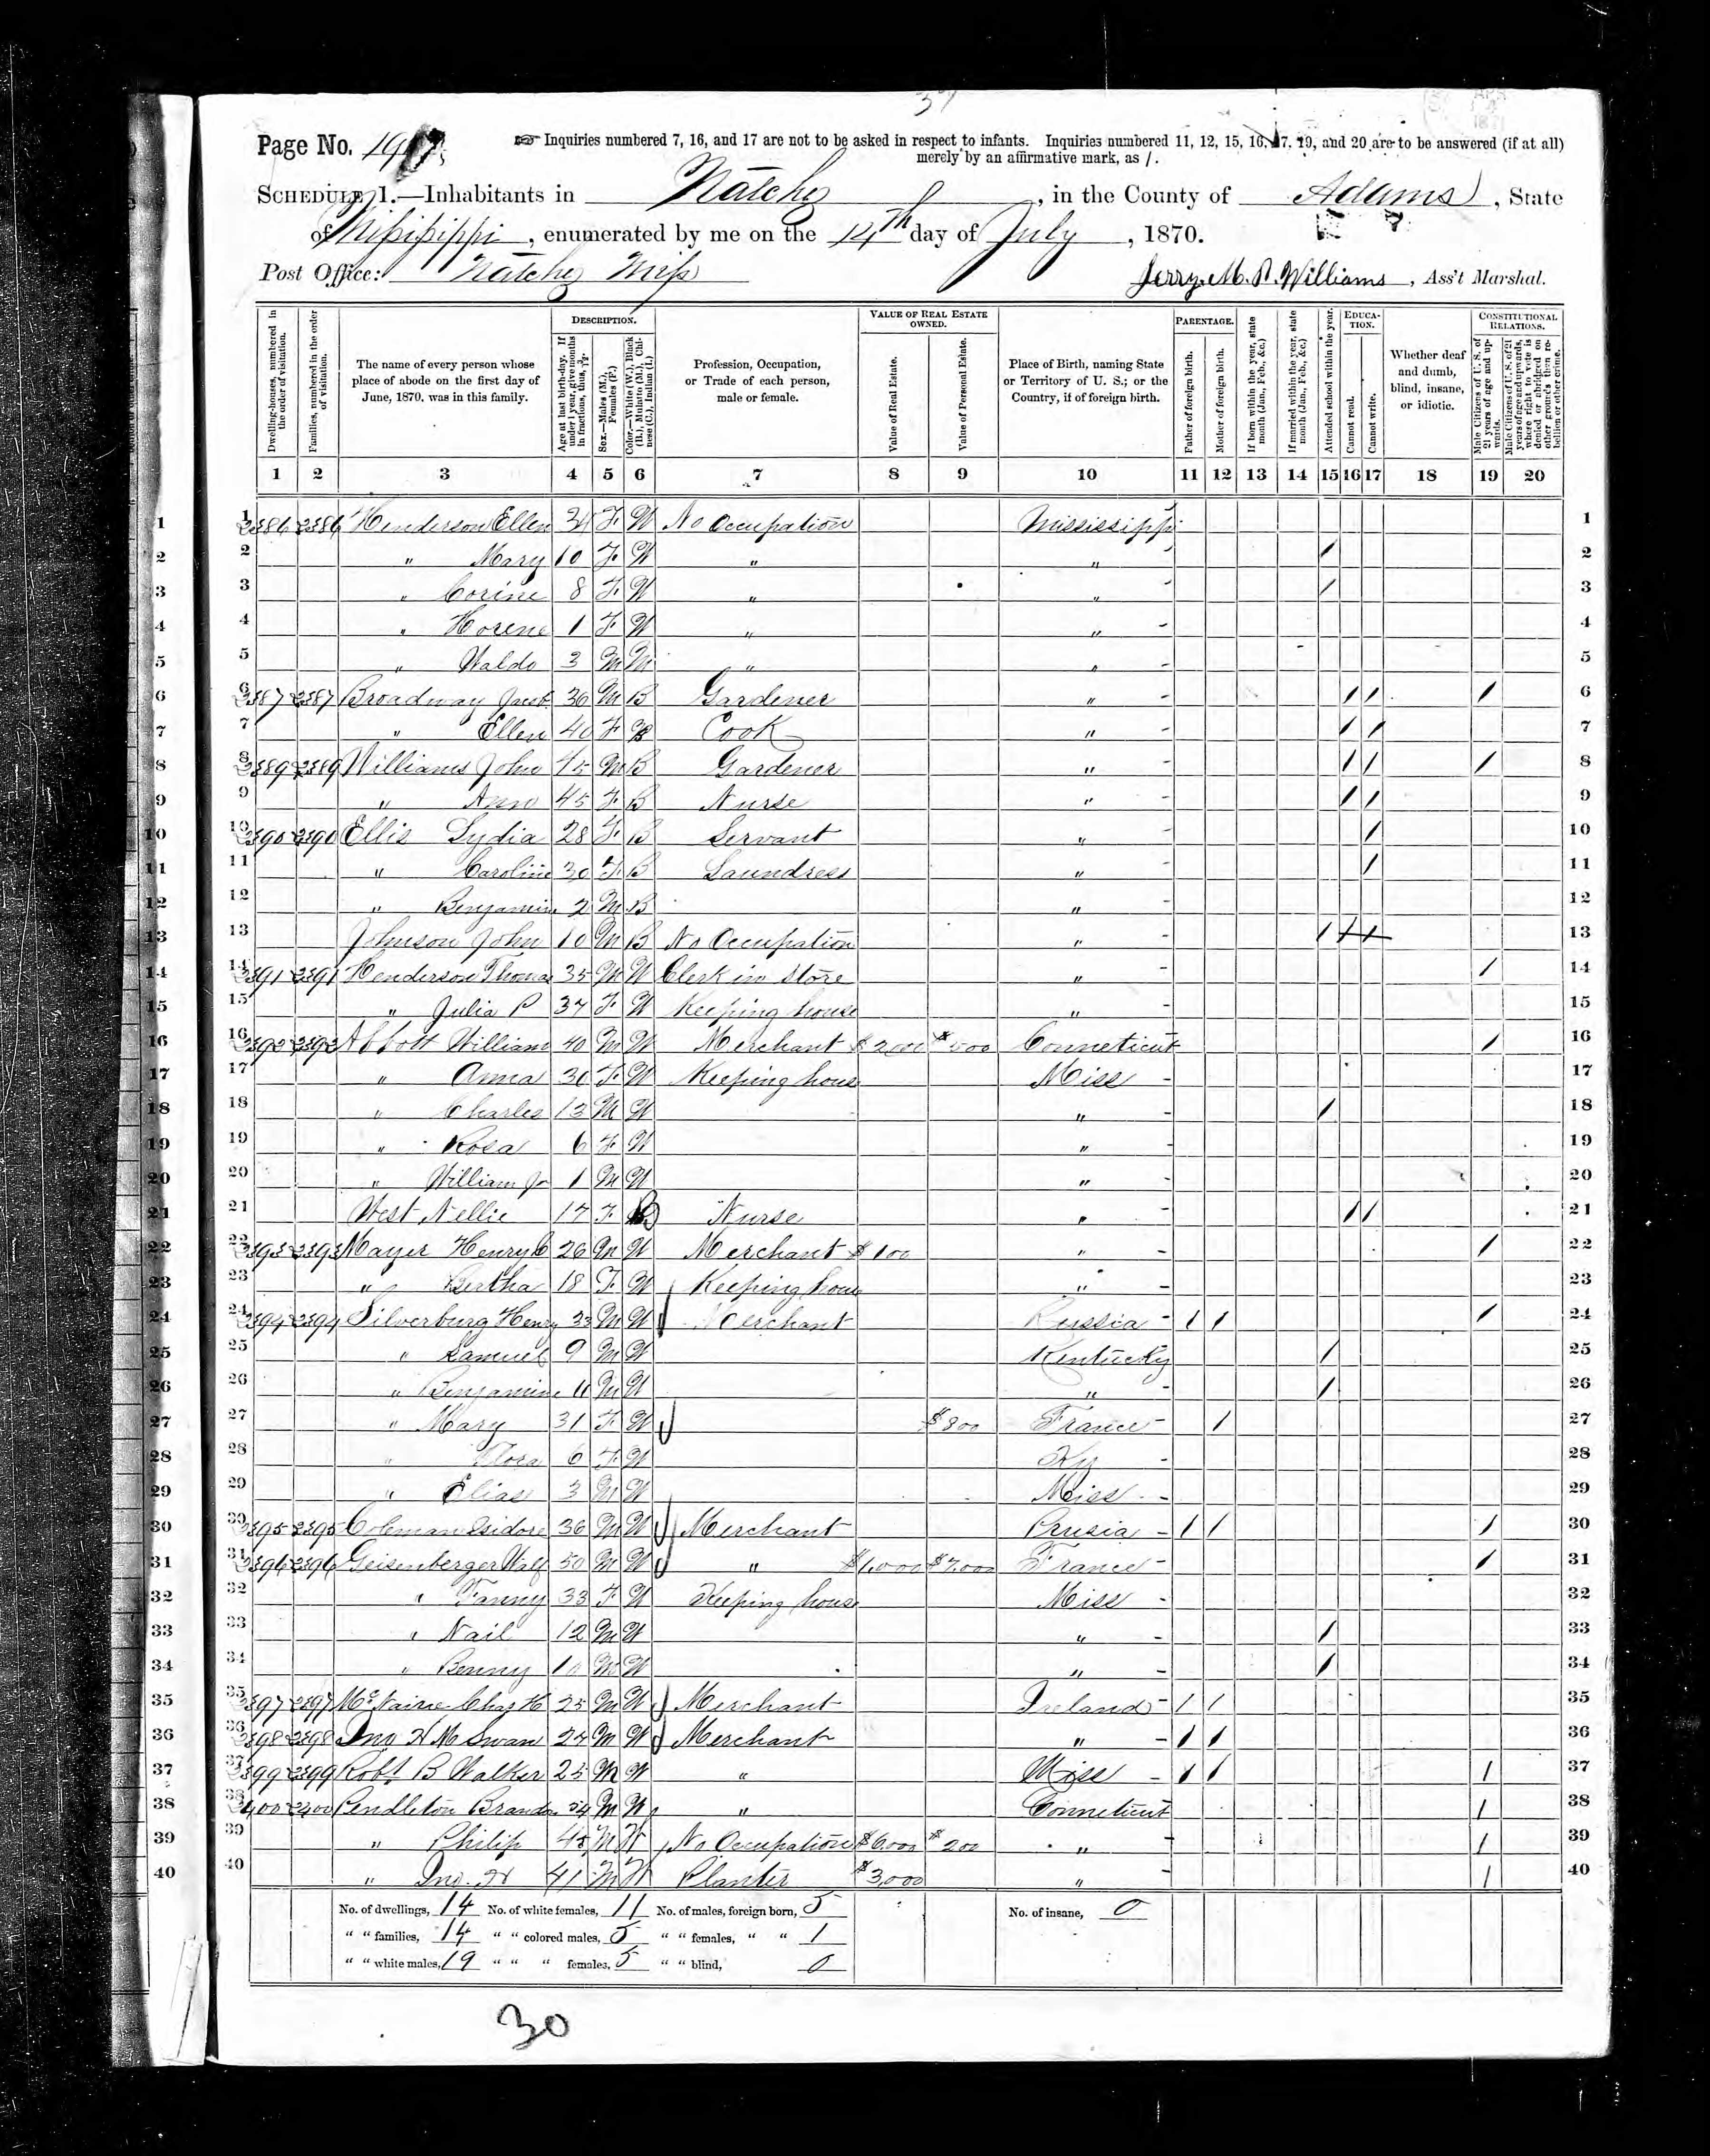 Page No. 197
☞ Inquiries numbered 7, 16, and 17 are not to be asked in respect to infants. Inquiries numbered 11, 12, 15, 16, 17, 19, and 20 are to be answered (if at all)
merely by an affirmative mark, as /.
SCHEDULE 1.—Inhabitants in Natchez, in the County of Adams, State
of Mississippi, enumerated by me on the 14th day of July, 1870.
Post Office: Natchez Miss
Jerry M. P. Williams, Ass't Marshal.
Dwelling-houses, numbered in the order of visitation.
Families, numbered in the order of visitation.
The name of every person whose place of abode on the first day of June, 1870, was in this family.
DESCRIPTION.
Age at last birth-day. If under 1 year, give months in fractions, thus, 3/12.
Sex.—Males (M.), Females (F.)
Color.—White (W.), Black (B.), Mulatto (M.), Chinese (C.), Indian (I.)
Profession, Occupation, or Trade of each person, male or female.
VALUE OF REAL ESTATE OWNED.
Value of Real Estate.
Value of Personal Estate.
Place of Birth, naming State or Territory of U. S.; or the Country, if of foreign birth.
PARENTAGE.
Father of foreign birth.
Mother of foreign birth.
If born within the year, state month (Jan., Feb., &c.)
If married within the year, state month (Jan., Feb., &c.)
Attended school within the year.
EDUCATION.
Cannot read.
Cannot write.
Whether deaf and dumb, blind, insane, or idiotic.
CONSTITUTIONAL RELATIONS.
Male Citizens of U. S. of 21 years of age and upwards.
Male Citizens of U. S. of 21 years of age and upwards, where right to vote is denied or abridged on other grounds than rebellion or other crime.
1 2 3 4 5 6 7 8 9 10 11 12 13 14 15 16 17 18 19 20
1 2386 2386 Henderson Ellen F W No Occupation Mississippi 1
2 " Mary 10 F W " " / 2
3 " Corine 8 F W " " / 3
4 " Horene 1 F W " " 4
5 " Waldo 3 M W " " 5
6 2387 2387 Broadway Jacob 36 M B Gardener " / / / 6
7 " Ellen 40 F B Cook " / / 7
8 2389 2389 Williams John 45 M B Gardener " / / / 8
9 " Ann 45 F B Nurse " / / 9
10 2390 2390 Ellis Lydia 28 F B Servant " / 10
11 " Caroline 30 F B Laundress " / 11
12 " Benjamin 2 M B " 12
13 Johnson John 10 M B No Occupation " / / / 13
14 2391 2391 Henderson Thomas 35 M W Clerk in Store " / 14
15 " Julia P 37 F W Keeping house " 15
16 2392 2392 Abbott William 40 M W Merchant $2000 $500 Conneticut / 16
17 " Anna 30 F W Keeping house Miss 17
18 " Charles 13 M W " / 18
19 " Rosa 6 F W " 19
20 " William Jr 1 M W " 20
21 West Nellie 17 F B Nurse " / / 21
22 2393 2393 Mayer Henry C 26 M W Merchant $100 " / 22
23 " Bertha 18 F W Keeping house " 23
24 2394 2394 Silverburg Henry 33 M W Merchant Russia / / / 24
25 " Samuel 9 M W Kentucky / 25
26 " Benjamine 11 M W " / 26
27 " Mary 31 F W $800 France / 27
28 " Flora 6 F W Ky 28
29 " Elias 3 M W Miss 29
30 2395 2395 Coleman Isidore 36 M W Merchant Prusia / / / 30
31 2396 2396 Geisenberger Walf 50 M W " $1,000 $7,000 France / 31
32 " Fanny 33 F W Keeping house Miss 32
33 " Nail 12 M W " / 33
34 " Benny 10 M W " / 34
35 2397 2397 McNairie Chas H 25 M W Merchant Ireland / / 35
36 2398 2398 Jno H McSwan 24 M W Merchant " / / 36
37 2399 2399 Robt B Walker 25 M W " Miss / / / 37
38 2400 2400 Pendleton Brandn 54 M W " Conneticut / 38
39 " Philip 45 M W No Occupation $6,000 $200 " / 39
40 " Jno. H 41 M W Planter $3,000 " / 40
No. of dwellings, 14 No. of white females, 11 No. of males, foreign born, 5 No. of insane, 0
" " families, 14 " " colored males, 5 " " females, " " 1
" " white males, 19 " " " females, 5 " " blind, 0
30